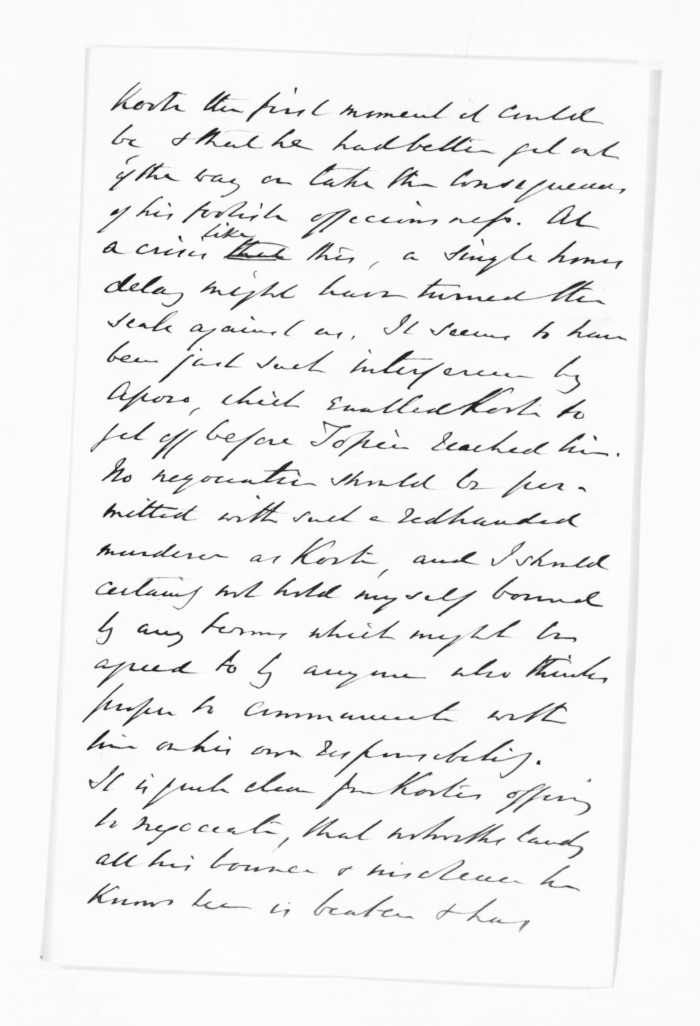 Kooti the first moment it could
be & that he had better get out
of the way or take the consequences
of his foolish officiousness. At
a crisis like this, a single hours
delay might have turned the
scale against us. It seems to have
been just such interference by
which enabled Kooti to
get off before Topia reached him.
No negociation should be per-
mitted with such a redhanded
murderer as Kooti, and I should
certainly not hold myself bound
by any terms which might be
agreed to by anyone who thinks
proper to communicate with
him on his own responsibility.
It is quite clear from Kooti's offering
to negociate, that notwithstanding
all his bounce &
knows he is beaten & has